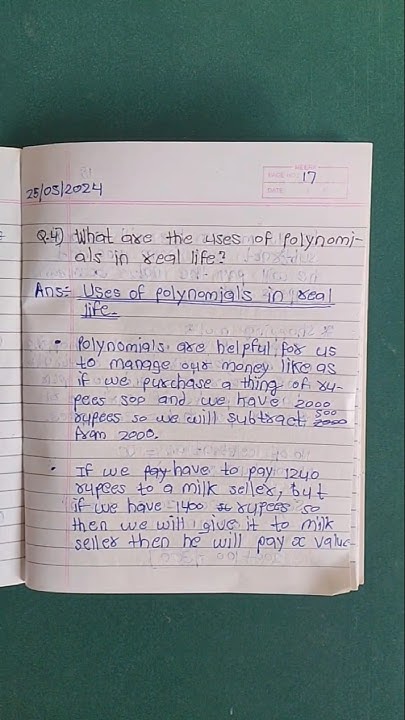 25/05/2024
PAGE NO.: 17
DATE:
Q.4) What are the uses of polynomi-
als in real life?
Ans= Uses of polynomials in real
life.
• Polynomials are helpful for us
to manage our money like as
if we purchase a thing of ru-
pees 500 and we have 2000
rupees so we will subtract 500
from 2000.
• If we pay have to pay 1240
rupees to a milk seller, but
if we have 1400 rupees so
then we will give it to milk
seller then he will pay x value